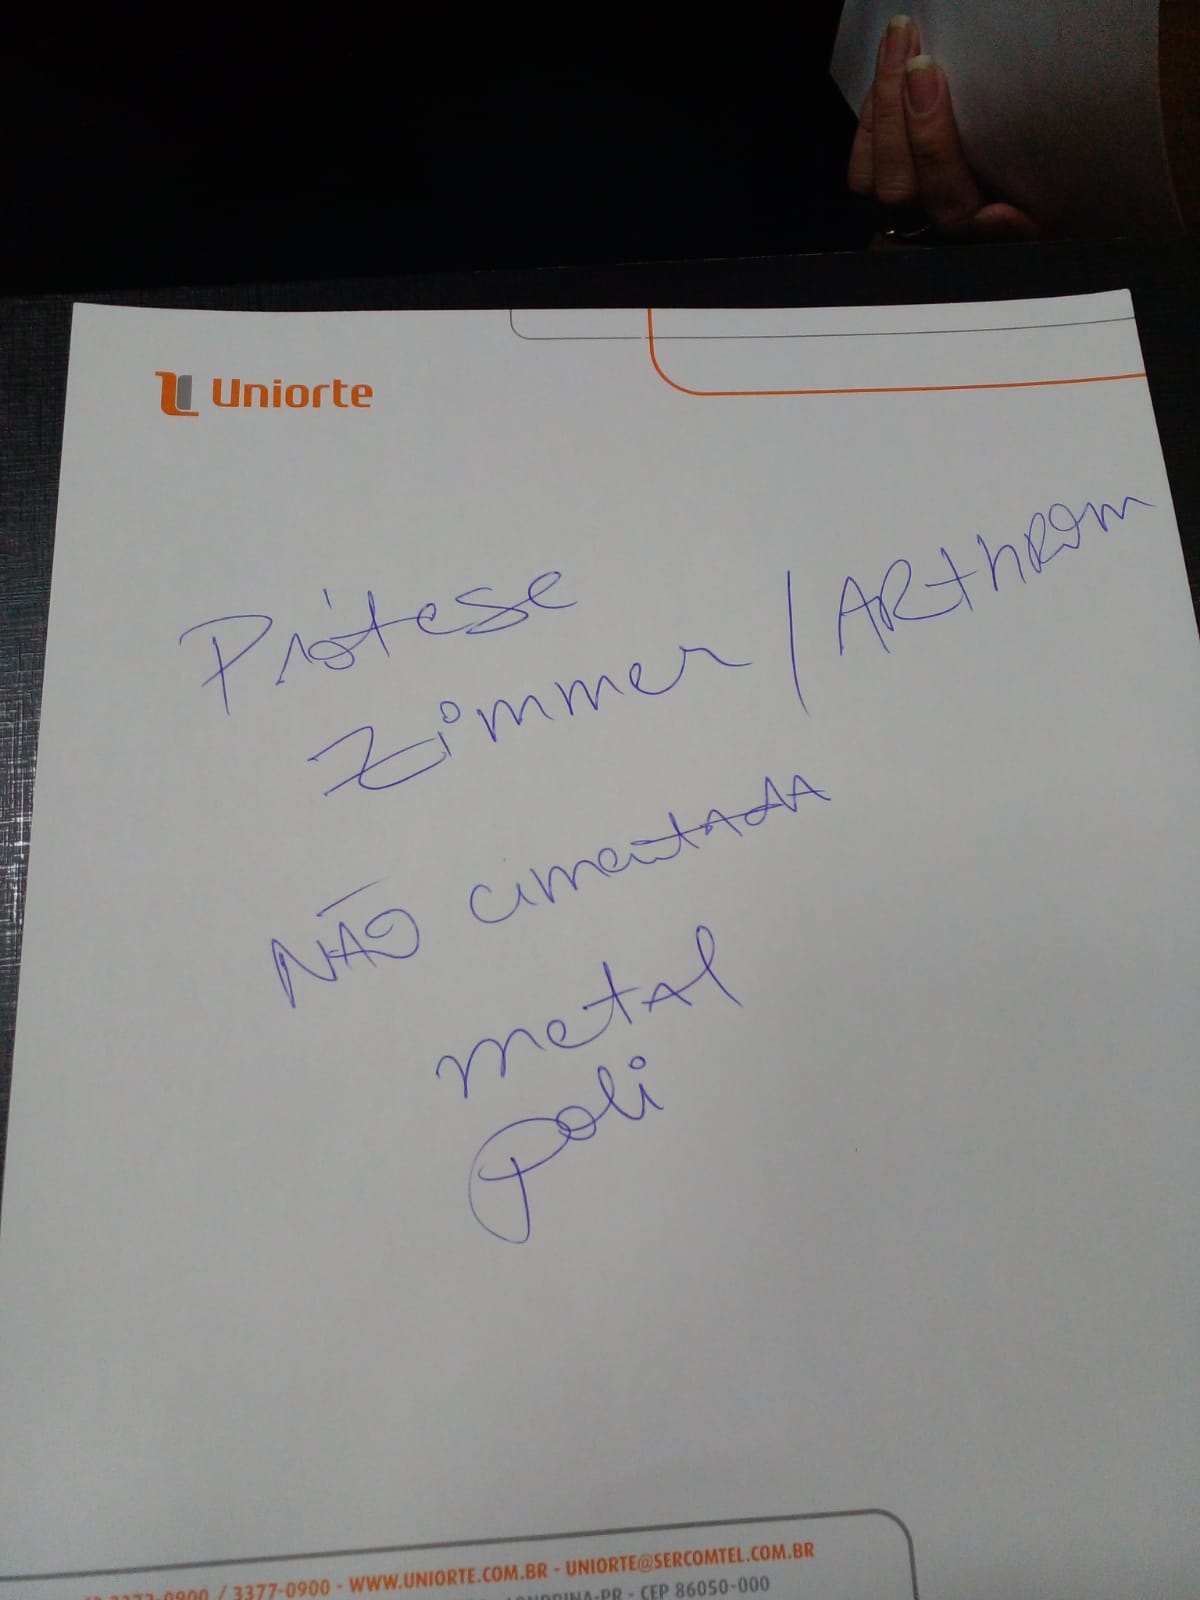 Uniorte
Prótese
Zimmer / ARthROm
NÃO cimentada
metal
poli
3377-0900 - WWW.UNIORTE.COM.BR - UNIORTE@SERCOMTEL.COM.BR
LONDRINA-PR - CEP 86050-000